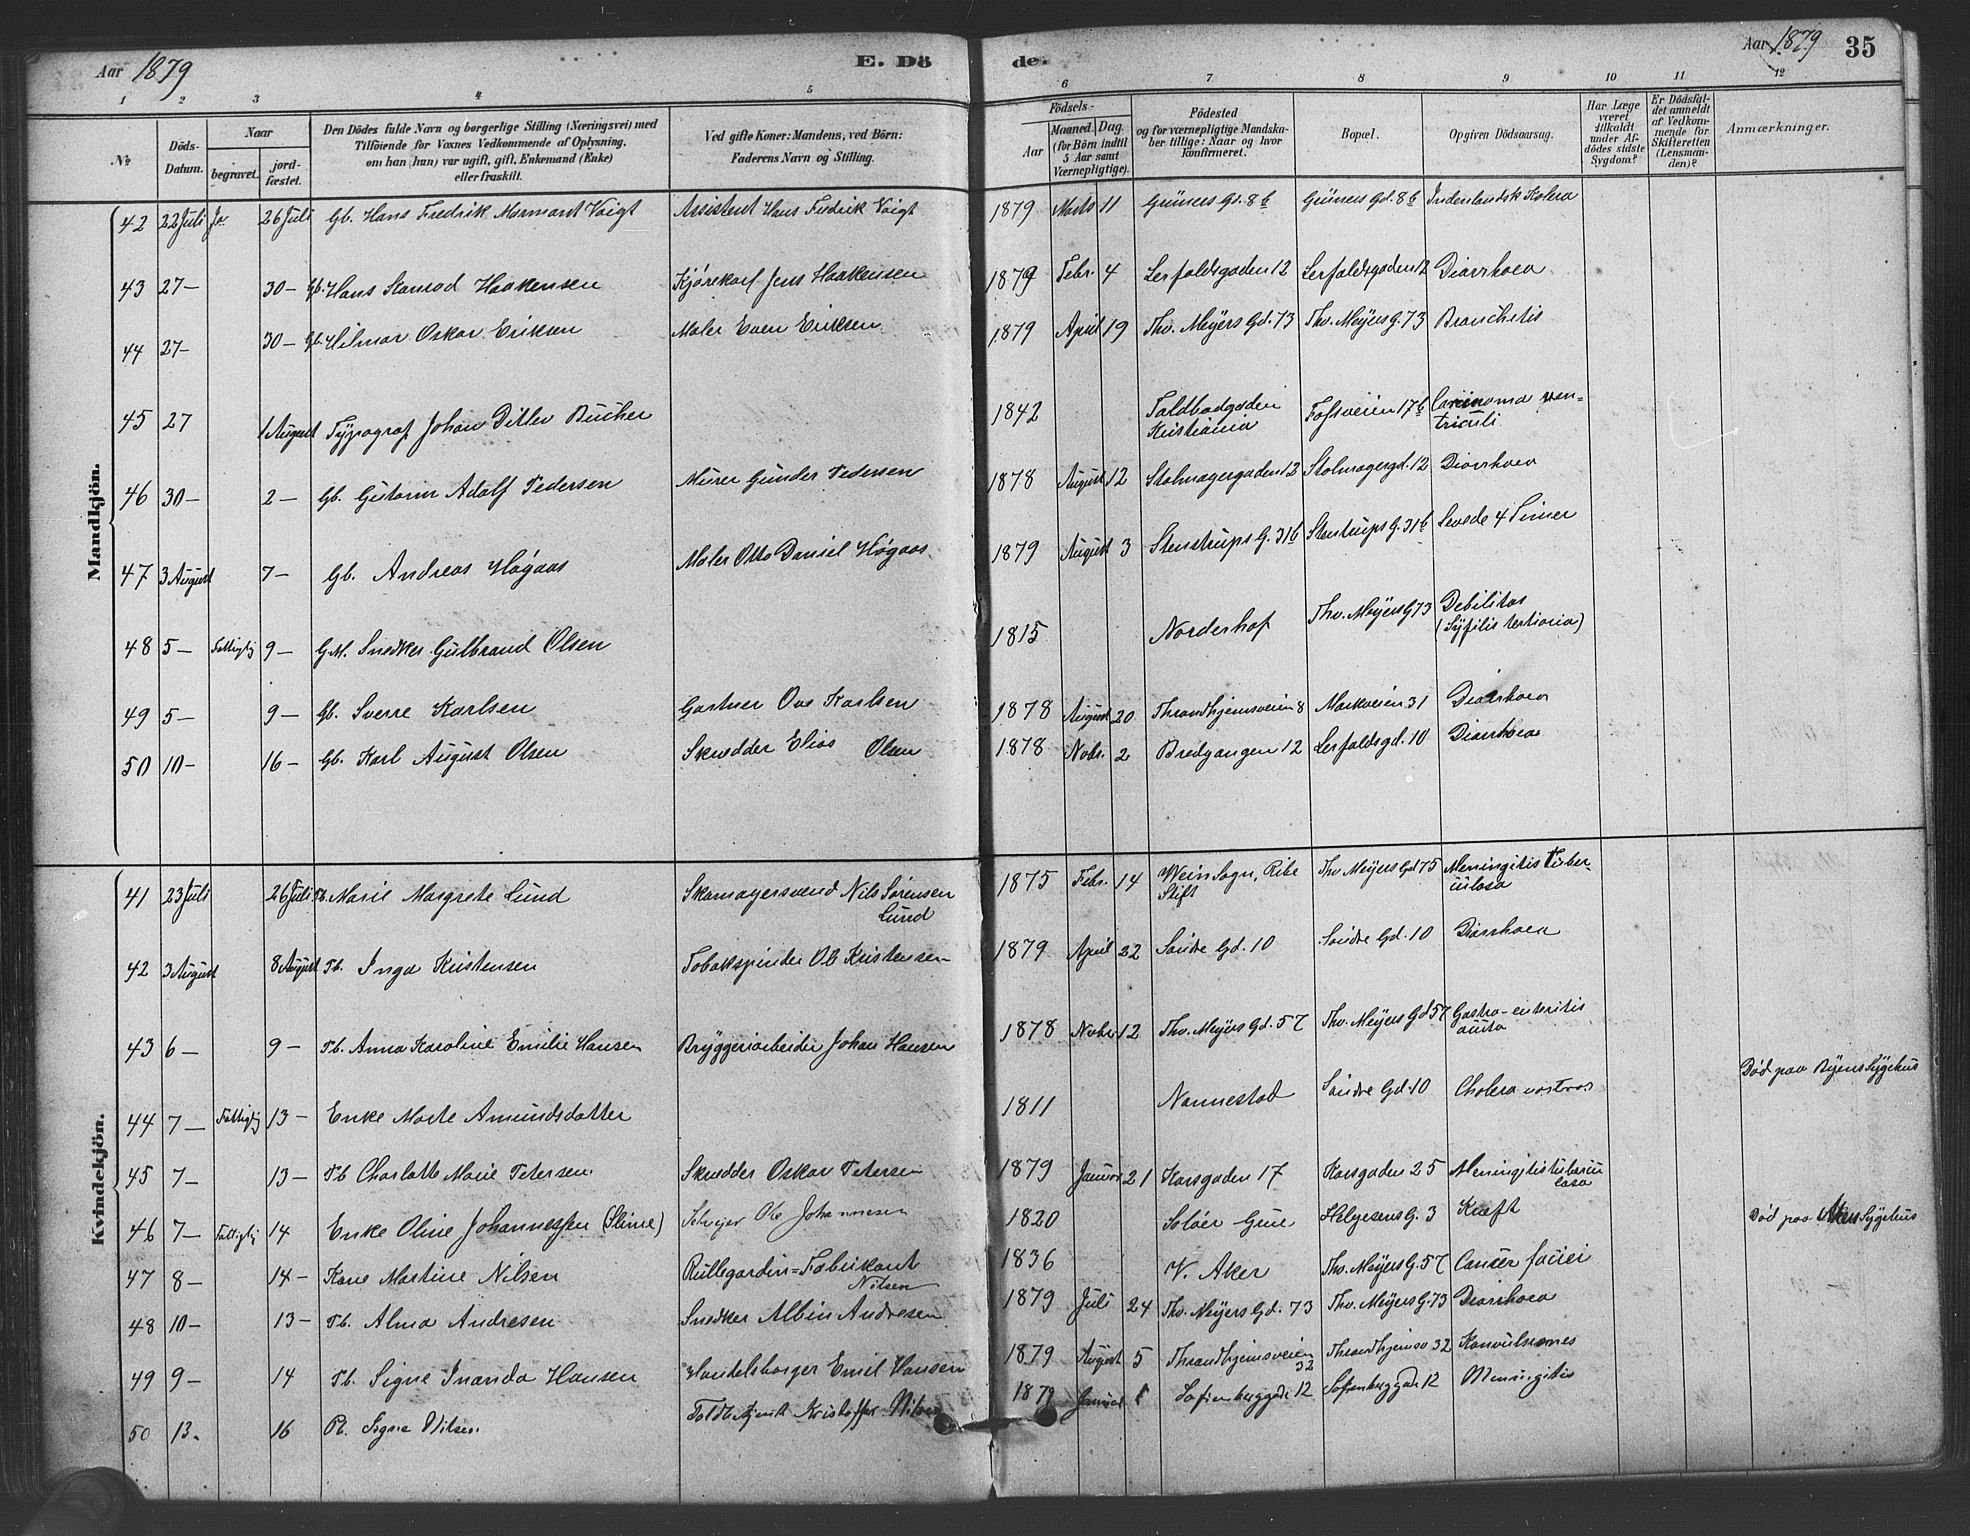 Aar 1879 E. Dö
de. Aar 1879 35
1 2 3 4 5 6 7 8 9 10 11 12
No
Döds-Datum.
Naar
begravet.
jord-fæstet.
Den Dödes fulde Navn og borgerlige Stilling (Næringsvei) med
Tilföiende for Voxnes Vedkommende af Oplysning,
om han (hun) var ugift, gift, Enkemand (Enke)
eller fraskilt.
Ved gifte Koner: Mandens, ved Börn:
Faderens Navn og Stilling.
Födsels-
Aar
Maaned. Dag.
(for Börn indtil
5 Aar samt
Værnepligtige).
Födested
og for værnepligtige Mandska-
ber tillige: Naar og hvor
konfirmeret.
Bopæl.
Opgiven Dödsaarsag.
Har Læge
været
tilkaldt
under Af-
dödes sidste
Sygdom?
Er Dödsfal-
det anmeldt
af Vedkom-
mende for
Skifteretten
(Lensman-
den)?
Anmærkninger.
Mandkjön.
42 22 Juli Ja 26 Juli Gb. Hans Fredrik Marmont Voigt Assistent Hans Fredrik Voigt 1879 Marts 11 Grüners Gd. 8b Grüners Gd. 8b Indenlandsk Kolera
43 27- 30- Gb. Hans Konrad Haakensen Kjørekarl Jens Haakensen 1879 Febr. 4 Lerfaldsgaden 12 Lerfaldsgaden 12 Diarrhoea
44 27- 30- Gb. Hilmar Oskar Eriksen Maler Even Eriksen 1879 April 19 Thv. Meÿers Gd. 73 Thv. Meÿers G. 73 Bronchitis
45 27 1 August Typograf Johan Ditlev Bucher 1842 Toldbodgaden Kristiania Fossveien 17b Carcinoma ven-
triculi
46 30- 2- Gb. Gutorm Adolf Pedersen Murer Gunder Pedersen 1878 August 12 Stolmagergaden 12 Stolmagergd. 12 Diarrhoea
47 3 August 7- Gb. Andreas Høgaas Maler Otto Daniel Høgaas 1879 August 3 Stenstrups G. 31b Stenstrups G. 31b Levede 4 Timer
48 5- Fattiglig 9- G.M. Snedker Gulbrand Olsen 1815 Norderhof Thv. Meÿers G 73 Debilitas
(Syfilis tertiaria)
49 5- 9- Gb. Sverre Karlsen Gartner Ove Karlsen 1878 August 20 Throndhjemsveien 8 Markveien 31 Diarrhoea
50 10- 16- Gb. Karl August Olsen Skrædder Elias Olsen 1878 Novbr. 2 Bredgangen 12 Lerfaldsgd. 10 Diarrhoea
Kvindekjön.
41 23 Juli 26 Juli Pb. Marie Margrete Lund Skomagersvend Nils Sørensen
Lund 1875 Febr. 14 Wein Sogn, Ribe
Stift Thv Meÿers Gd 75 Meningitis Tuber-
culosa
42 3 August 8 August Pb. Inga Kristensen Tobakspinder Ole Kristensen 1879 April 22 Søndre Gd. 10 Søndre Gd. 10 Diarrhoea
43 6- 9- Pb. Anna Karoline Emilie Hansen Bryggeriarbeider Johan Hansen 1878 Novbr. 12 Thv. Meÿers Gd. 57 Thv. Meÿers Gd 57 Gastro-enteritis
acuta
44 7- Fattiglig 13- Enke Marte Amundsdatter 1811 Nannestad Søndre Gd. 10 Cholera nostras Død paa Byens Sygehus
45 7- 13- Pb Charlotte Marie Petersen Skrædder Oskar Petersen 1879 Januar 21 Korsgaden 17 Korsgaden 25 Meningitis tubercu
losa
46 7- Fattiglig 14 Enke Oline Johannessen (Stine) Ole Johannesen 1820 Soløer Grue Helgesens G. 3 Kræft Død paa Akers Sygehus
47 8- 14- Kone Martine Nilsen Rullegardin=Fabrikant
Nilsen 1836 V. Aker Thv. Meÿers G. 57 Cancer faciei
48 10- 13- Pb. Alma Andresen Snedker Albin Andresen 1879 Juli 24 Thv. Meÿers Gd. 73 Thv. Meÿers G. 73 Diarrhoea
49 9- 14 Pb. Signe Inanda Hansen Handelsborger Emil Hansen 1879 August 5 Throndhjemsveien
32 Throndhjemsv 32 Konvulsiones
50 13- 16 Pb. Signe Nilsen Kristoffer Nilsen 1879 Januar Sofienberggade 12 Sofienberggade 12 Meningitis